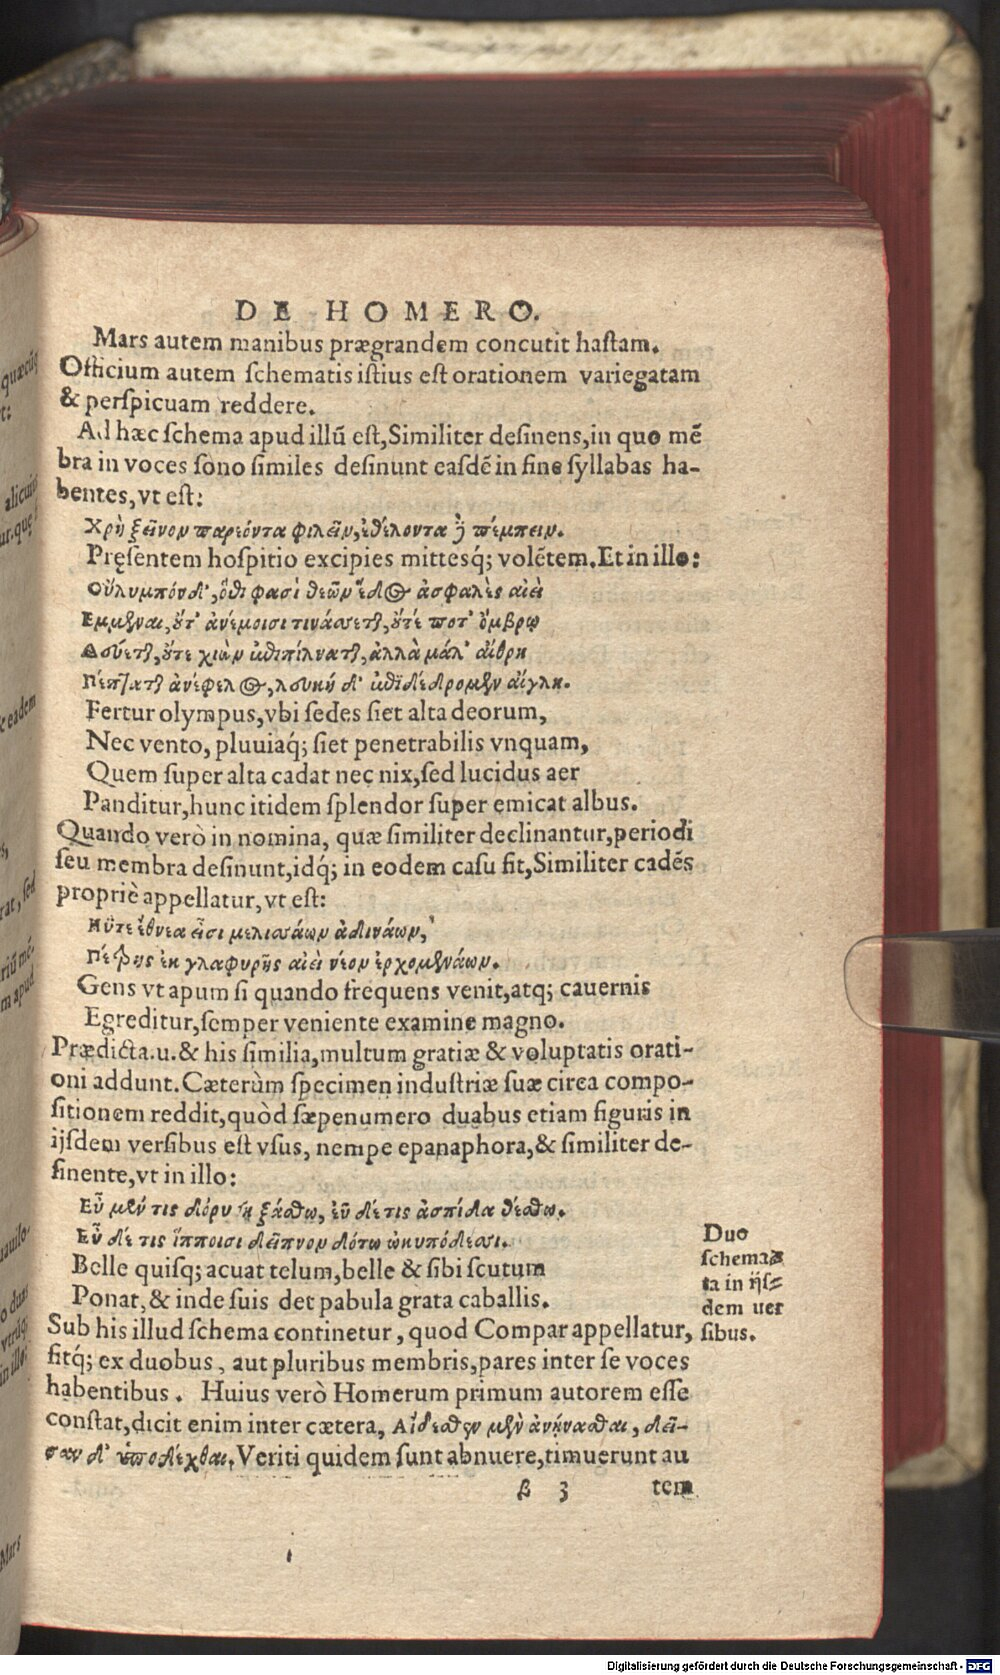 DE HOMERO.
Mars autem manibus prægrandem concutit hastam.
Officium autem schematis istius est orationem variegatam
& perspicuam reddere.
Ad hæc schema apud illũ est, Similiter desinens, in quo mẽ
bra in voces sono similes desinunt easdẽ in fine syllabas ha-
bentes, vt est:
Χρὴ ξεῖνον παρεόντα φιλεῖν, ἐθέλοντα ϳ πέμπειν.
Pręsentem hospitio excipies mittesq́; volẽtem. Et in illo:
Οὔλυμπόνδ', ὅθι φασὶ θεῶν ἕδος ἀσφαλὲς αἰεὶ
Εμμεναι, ὔτ' ἀνέμοισι τινάσσεται, ὔτέ ποτ' ὄμβρῳ
Δεύεται, ὔτε χιὼν ἐπιπίλναται, ἀλλὰ μάλ' αἴθρη
Πέπταται ἀνέφελος, λευκὴ δ' ἐπιδέδρομεν αἴγλη.
Fertur olympus, vbi sedes siet alta deorum,
Nec vento, pluuiaq́; siet penetrabilis vnquam,
Quem super alta cadat nec nix, sed lucidus aer
Panditur, hunc itidem splendor super emicat albus.
Quando verò in nomina, quæ similiter declinantur, periodi
seu membra desinunt, idq́; in eodem casu fit, Similiter cadẽs
propriè appellatur, vt est:
Ηὔτε ἔθνεα εἶσι μελισσάων ἀδινάων,
Πέτρης ἐκ γλαφυρῆς αἰεὶ νέον ἐρχομενάων.
Gens vt apum si quando frequens venit, atq; cauernis
Egreditur, semper veniente examine magno.
Prædicta.u. & his similia, multum gratiæ & voluptatis orati-
oni addunt. Cæterùm specimen industriæ suæ circa compo-
sitionem reddit, quòd sæpenumero duabus etiam figuris in
ijsdem versibus est vsus, nempe epanaphora, & similiter de-
sinente, vt in illo:
Εὖ μέν τις δόρυ θηξάσθω, εὖ δέ τις ἀσπίδα θέσθω.
Εὖ δέ τις ἵπποισι δεῖπνον δότω ὠκυπόδεσσι.
Belle quisq; acuat telum, belle & sibi scutum
Ponat, & inde suis det pabula grata caballis.
Duo
schema
ta in ijs
dem uer
sibus.
Sub his illud schema continetur, quod Compar appellatur,
fitq́; ex duobus, aut pluribus membris, pares inter se voces
habentibus. Huius verò Homerum primum autorem esse
constat, dicit enim inter cætera, Αἴδεσθεν μὲν ἀνήνασθαι, δεῖ-
σαν δ' ὑποδέχθαι. Veriti quidem sunt abnuere, timuerunt au
β 3 tem
Digitalisierung gefördert durch die Deutsche Forschungsgemeinschaft - DFG